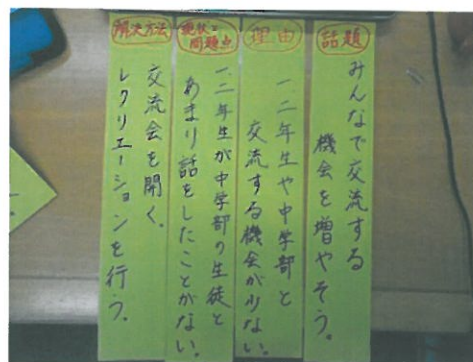 話題
みんなで交流する
機会を増やそう。
理由
一、二年生や中学部と
交流する機会が少ない。
現状と
問題点
一、二年生が中学部の生徒と
あまり話をしたことがない。
解決方法
交流会を開く。
レクリエーションを行う。